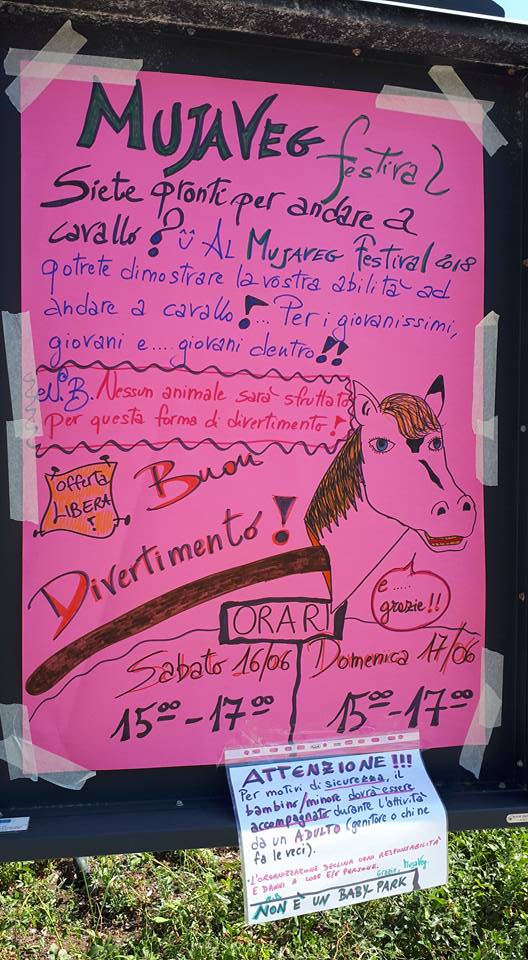 MUJAVEG festival
Siete pronti per andare a
cavallo? Ü AL MUJAVEG Festival 2018
potrete dimostrare la vostra abilità ad
andare a cavallo!... Per i giovanissimi,
giovani e.... giovani dentro!!
N.B. Nessun animale sarà sfruttato
per questa forma di divertimento!
offerta
LIBERA!
Buon
Divertimento!
e.....
grazie!!
ORARI
Sabato 16/06
15⁰⁰-17⁰⁰
Domenica 17/06
15⁰⁰-17⁰⁰
ATTENZIONE!!!
Per motivi di sicurezza, il
bambino/minore dovrà essere
accompagnato durante l'attività
da un ADULTO (genitore o chi ne
fa le veci).
•L'ORGANIZZAZIONE DECLINA OGNI RESPONSABILITÀ
E DANNI A COSE E/O PERSONE. GRAZIE, MujaVeg
N.B.
NON È UN BABY PARK